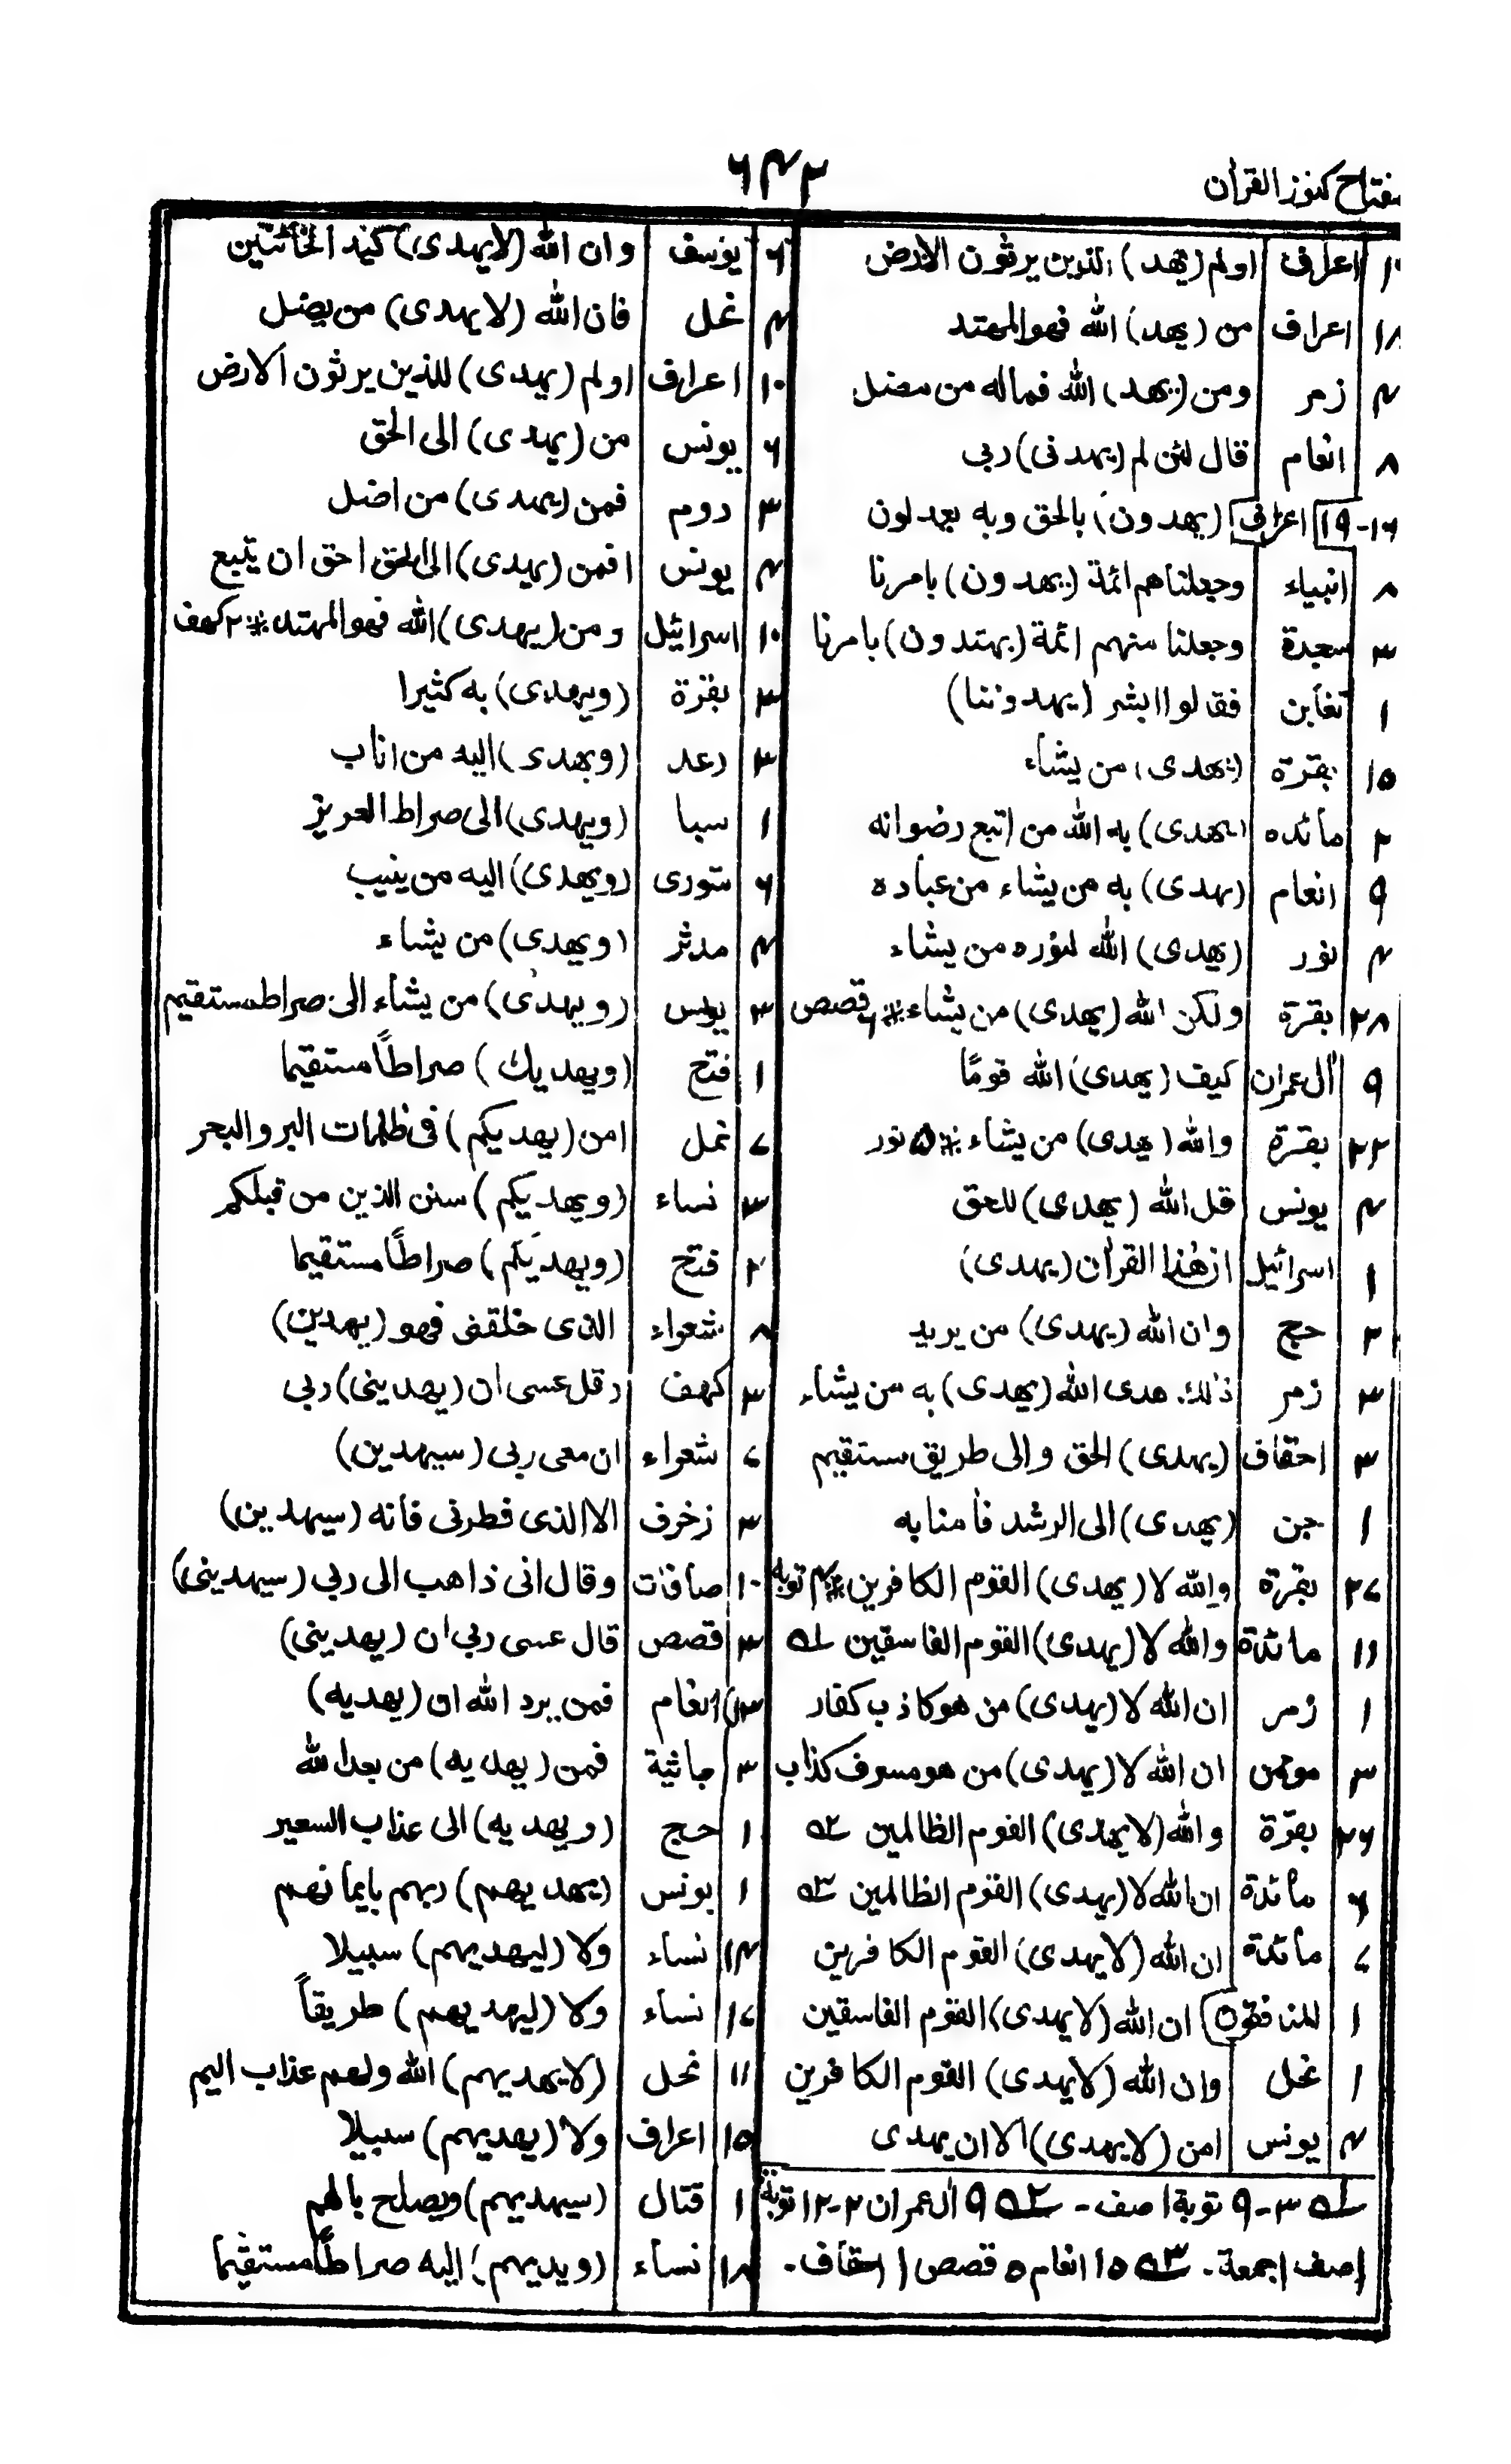 مفتاح کنوز القران
۶۴۲
۱۰ اعراف اولم (یهد) الذین یرثون الارض
۱۸ اعراف من (یهد) الله فهوالمهتد
۴ زمر ومن (یهد) الله فماله من مضل
۸ انعام قال لئن لم (یهدنی) ربی
۱۹-۱۶ اعراف (یهدون) بالحق وبه یعدلون
۸ انبیاء وجعلناهم ائمة (یهدون) بامرنا
۳ سجدة وجعلنا منهم ائمة (یهتدون) بامرنا
۱ تغابن فقالوا ابشر (یهدوننا)
۱۵ بقرة (یهدی) من یشاء
۲ مائده (یهدی) به الله من اتبع رضوانه
۹ انعام (یهدی) به من یشاء من عباده
۴ نور (یهدی) الله لنوره من یشاء
۲۸ بقرة ولکن الله (یهدی) من یشاء * ۶ قصص
۹ اٰل عمران کیف (یهدی) الله قومًا
۲۲ بقرة والله (یهدی) من یشاء * ۵ نور
۴ یونس قل الله (یهدی) للحق
۱ اسرائیل ان هٰذا القراٰن (یهدی)
۲ حج وان الله (یهدی) من یرید
۳ زمر ذٰلك هدی الله (یهدی) به من یشاء
۳ احقاف (یهدی) الحق والی طریق مستقیم
۱ جن (یهدی) الی الرشد فاٰمنا به
۲۷ بقرة والله لا (یهدی) القوم الکافرین * ۴ توبه
۱۱ مائدة والله لا (یهدی) القوم الفاسقین ۵۱
۱ زمر ان الله لا (یهدی) من هو کاذب کفار
۳ مومن ان الله لا (یهدی) من هو مسرف کذاب
۲۶ بقرة والله (لایهدی) القوم الظالمین ۵۲
۶ مائدة ان الله لا (یهدی) القوم الظالمین ۵۳
۷ مائدة ان الله (لایهدی) القوم الکافرین
۱ المنافقون ان الله (لایهدی) القوم الفاسقین
۱ نحل وان الله (لایهدی) القوم الکافرین
۴ یونس امن (لایهدی) الا ان یهدی
۵۱ ۳-۹ توبة ۱ صف - ۵۲ ۹ اٰل عمران ۲-۱۲ توبة
۱ صف ۱ جمعة - ۵۳ ۱۵ انعام ۵ قصص ۱ احقاف -
۶ یوسف وان الله (لایهدی) کید الخائنین
۴ نحل فان الله (لایهدی) من یضل
۱۰ اعراف اولم (یهدی) للذین یرثون الارض
۶ یونس من (یهدی) الی الحق
۳ روم فمن (یهدی) من اضل
۴ یونس افمن (یهدی) الی الحق احق ان یتبع
۱۰ اسرائیل ومن (یهدی) الله فهو المهتد * ۲ کهف
۳ بقرة (ویهدی) به کثیرا
۳ رعد (ویهدی) الیه من اناب
۱ سبا (ویهدی) الی صراط العزیز
۶ شوری (ویهدی) الیه من ینیب
۴ مدثر (ویهدی) من یشاء
۳ یونس (ویهدی) من یشاء الی صراط مستقیم
۱ فتح (ویهدیك) صراطًا مستقیما
۷ نمل امن (یهدیکم) فی ظلمات البر والبحر
۳ نساء (ویهدیکم) سنن الذین من قبلکم
۲ فتح (ویهدیکم) صراطًا مستقیما
۸ شعراء الذی خلقنی فهو (یهدین)
۳ کهف وقل عسی ان (یهدینی) ربی
۷ شعراء ان معی ربی (سیهدین)
۳ زخرف الا الذی فطرنی فانه (سیهدین)
۱۰ صافات وقال انی ذاهب الی ربی (سیهدینی)
۳ قصص قال عسی ربی ان (یهدینی)
انعام فمن یرد الله ان (یهدیه)
۳ جاثیة فمن (یهدیه) من بعد الله
۱ حج (ویهدیه) الی عذاب السعیر
۱ یونس (یهدیهم) ربهم بایمانهم
۱۴ نساء ولا (لیهدیهم) سبیلا
۱۷ نساء ولا (لیهدیهم) طریقاً
۱۱ نحل (لایهدیهم) الله ولهم عذاب الیم
۱۵ اعراف ولا (یهدیهم) سبیلا
۱ قتال (سیهدیهم) ویصلح بالهم
۱۸ نساء (ویدیهم) الیه صراطًا مستقیما